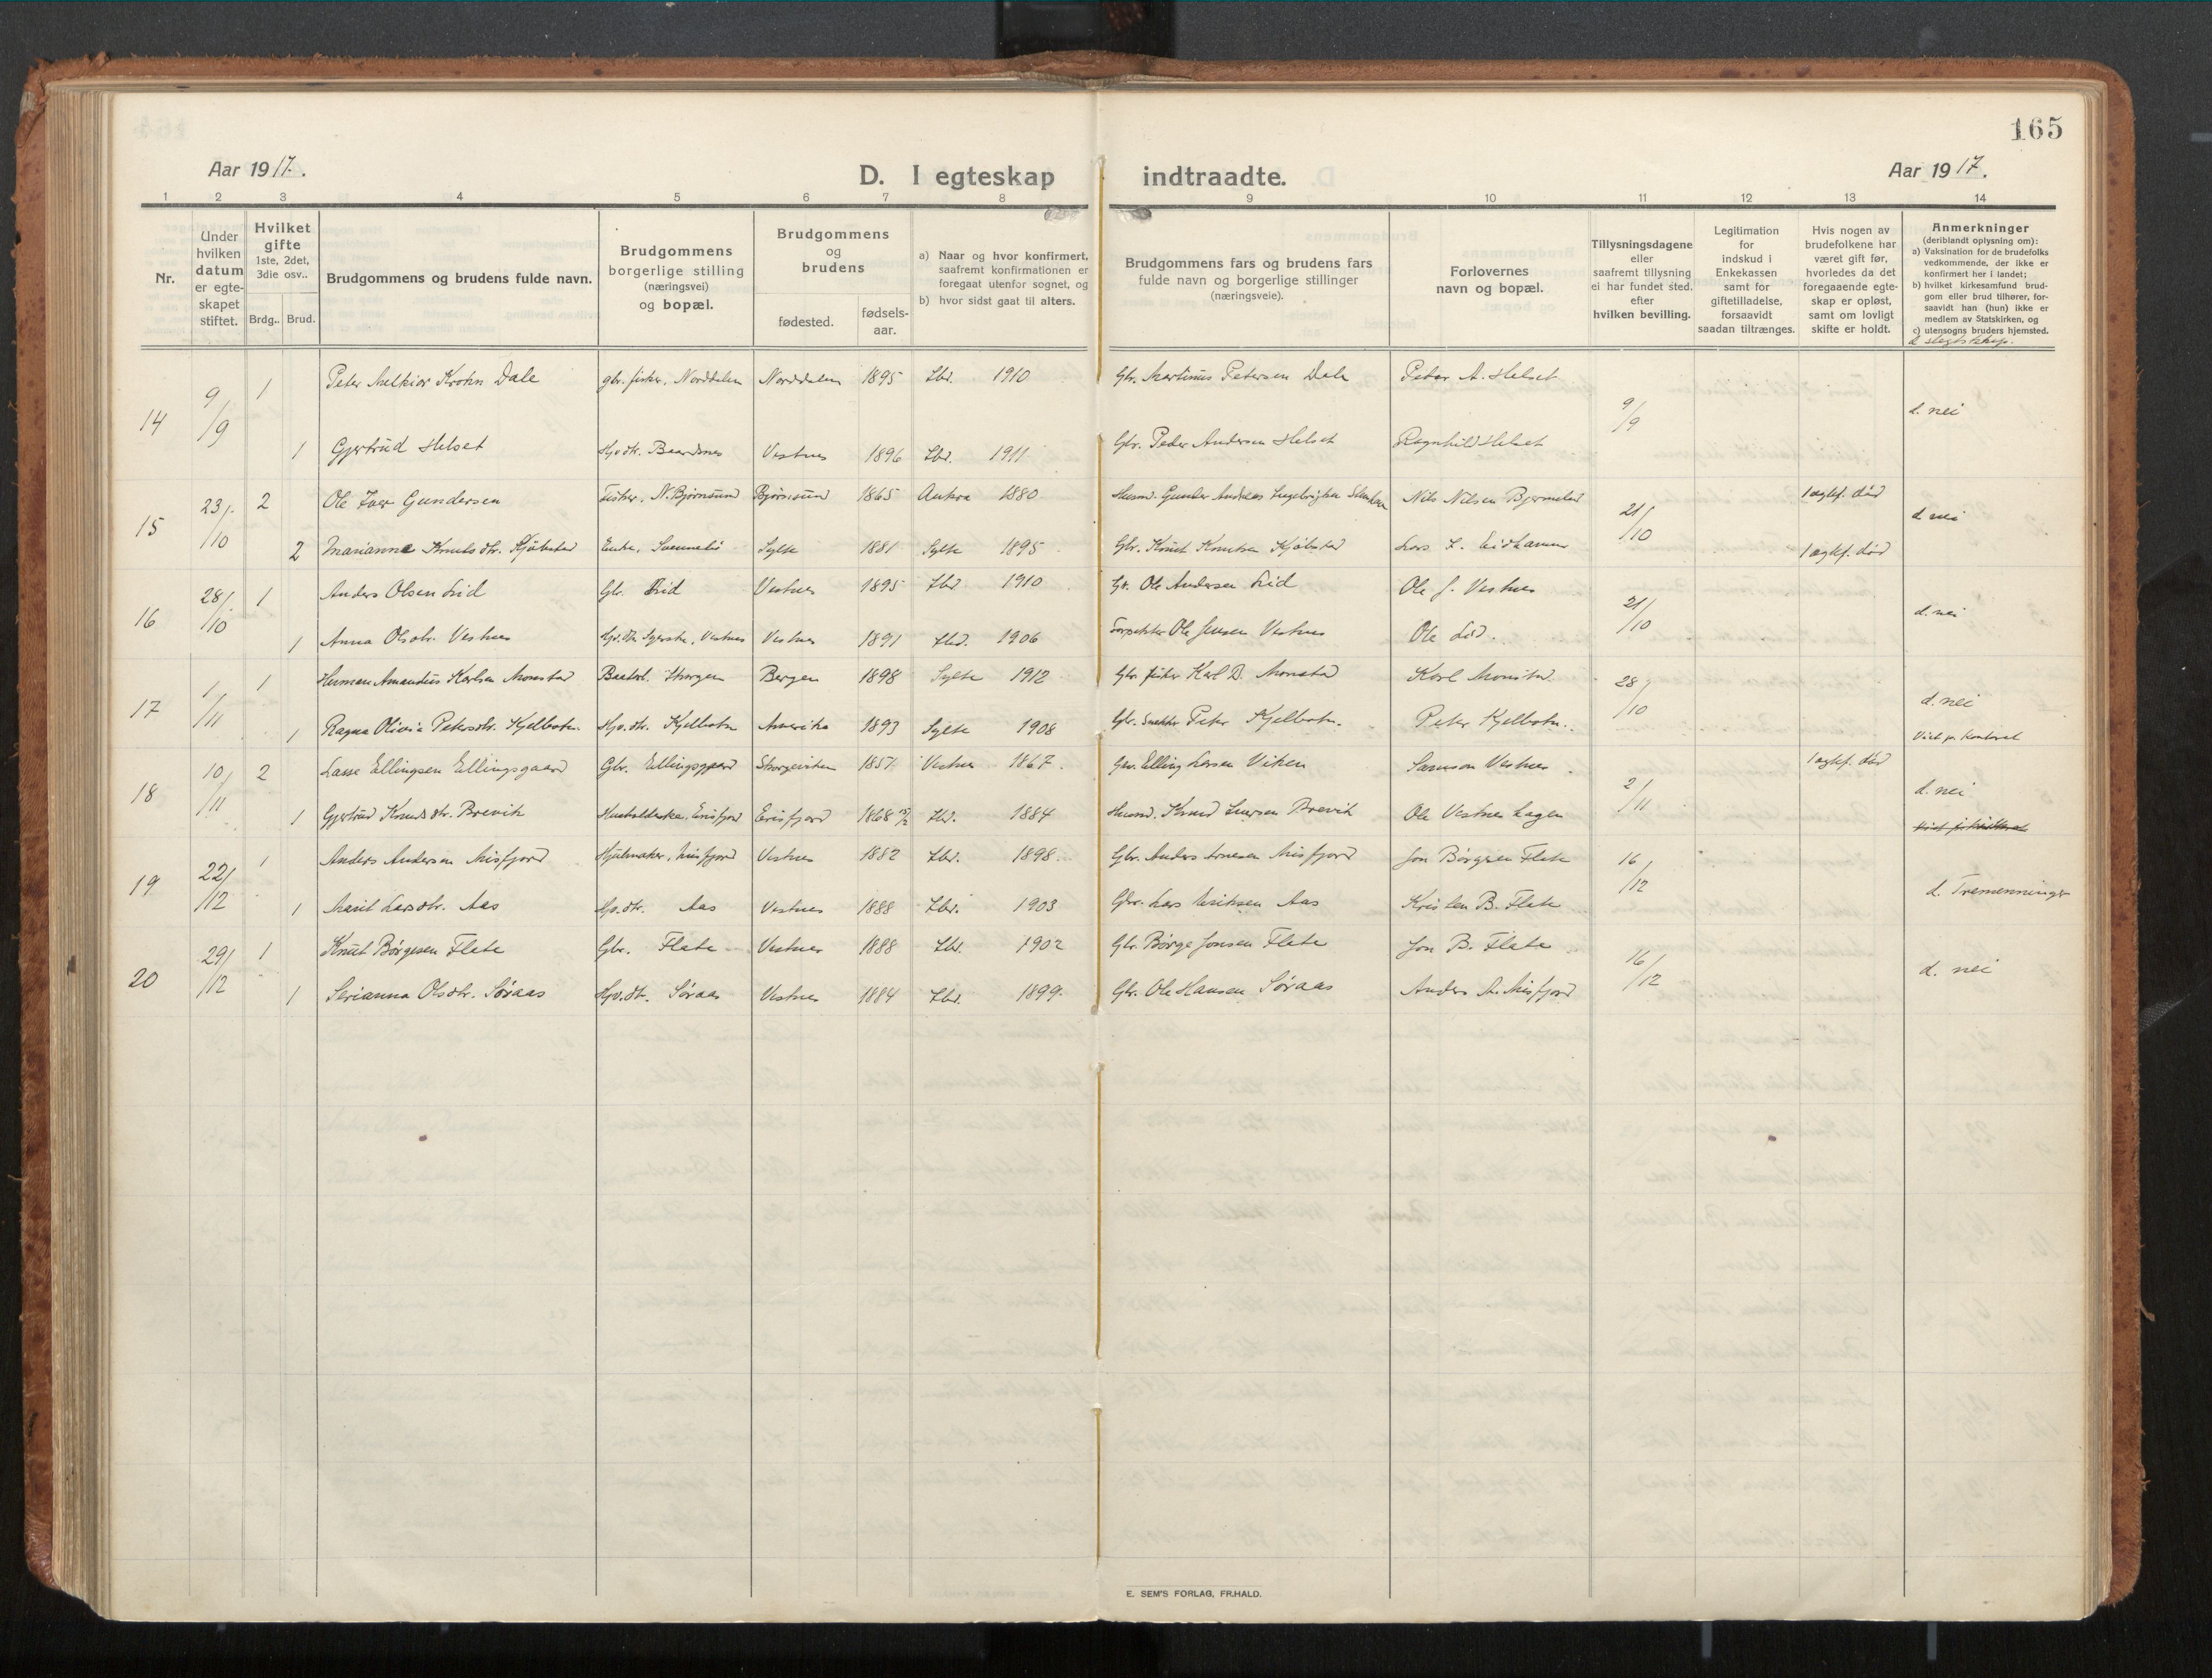 165
Aar 1917.
D. I egteskap indtraadte.
Aar 1917.
1 2 3 4 5 6 7 8 9 10 11 12 13 14
Nr.
Under hvilken datum er egte-skapet stiftet.
Hvilket gifte 1ste, 2det, 3die osv..
Brdg.. Brud.
Brudgommens og brudens fulde navn.
Brudgommens borgerlige stilling (næringsvei) og bopæl.
Brudgommens og brudens
fødested.
fødsels-aar.
a) Naar og hvor konfirmert, saafremt konfirmationen er foregaat utenfor sognet, og
b) hvor sidst gaat til alters.
Brudgommens fars og brudens fars fulde navn og borgerlige stillinger (næringsveie).
Forlovernes navn og bopæl.
Tillysningsdagene eller saafremt tillysning ei har fundet sted. efter hvilken bevilling.
Legitimation for indskud i Enkekassen samt for giftetilladelse, forsaavidt saadan tiltrænges.
Hvis nogen av brudefolkene har været gift før, hvorledes da det foregaaende egte-skap er opløst, samt om lovligt skifte er holdt.
Anmerkninger (deriblandt oplysning om):
a) Vaksination for de brudefolks vedkommende, der ikke er konfirmert her i landet;
b) hvilket kirkesamfund brud-gom eller brud tilhører, for-saavidt han (hun) ikke er medlem av Statskirken, og
c) utensogns bruders hjemsted.
d slegtskap.
14 9/9 1 Peter Melkior Krohn Dale gbr. fisker, Norddalen Norddalen 1895 Hbr. 1910 Gbr. Martinus Petersen Dale Peter A. Helset 9/9 d. nei
1 Gjertrud Helset Hjv.dtr. Baardsnes Vestnes 1896 Hbr. 1911 Gbr. Peder Andersen Helset Ragnhild Helset
15 23/10 2 Ole Iver Gundersen Fisker, N. Bjørnsund Bjørnsund 1865 Aukra 1880 Husm. Gunder Andreas Nils Nilsen 21/10 1 egtef. død d. nei
2 Marianne Knutsdtr. Kjøbstad Enke, Sylte 1881 Sylte 1895 Gbr. Knut Knutsen Kjøbstad Lars L. Eidhammer 1 egtef. død
16 28/10 1 Anders Olsen Lid Gbr. Lid Vestnes 1895 Hbr. 1910 Gbr. Ole Andersen Lid Ole J. Vestnes 21/10 d. nei
1 Anna Olsdtr. Vestnes Vestnes Vestnes 1891 Hbr. 1906 Ole Jensen Vestnes Ole Lid.
17 1/11 1 Herman Amandus Karlsen Monstad Bergen 1898 Sylte 1912 Gbr. fisker Karl D. Monstad Karl Monstad 28/10 d. nei
1 Ragna Olivia Petersdtr. Kjelbotn. Hjv.dtr. Kjelbotn Amerika 1893 Sylte 1908 Gbr. snekker Peter Kjelbotn. Peter Kjelbotn. Viet p. kontoret
18 10/11 2 Lasse Ellingsen Ellingsgaard Gbr. Ellingsgaard 1851 Vestnes 1867. Gbr. Elling Larsen Viken Samson Vestnes 2/11 1 egtef. død d. nei
1 Gjertrud Knudsdtr. Brevik Husholderske, Erisfjord Erisfjord 1868 Hbr. 1884 Husm. Knud Iversen Brevik Ole Vestnes Hagen
19 22/12 1 Anders Andersen Misfjord Hjulmaker, Misfjord Vestnes 1882 Hbr. 1898. Gbr. Anders Misfjord Jon Børgesen Flate 16/12 d. Tremenninger
1 Marit Larsdtr. Aas Hjv.dtr. Aas Vestnes 1888 Hbr. 1903 Gbr. Lars Eriksen Aas Kristen B. Flate
20 29/12 1 Knut Børgesen Flate Gbr. Flate Vestnes 1888 Hbr. 1902 Gbr. Børge Jonsen Flate Jon B. Flate 16/12 d. nei
1 Serianna Olsdtr. Søraas Hjv.dtr. Søraas Vestnes 1884 Hbr. 1899. Gbr. Ole Hansen Søraas Anders A. Misfjord
E. SEM'S FORLAG, FR.HALD.